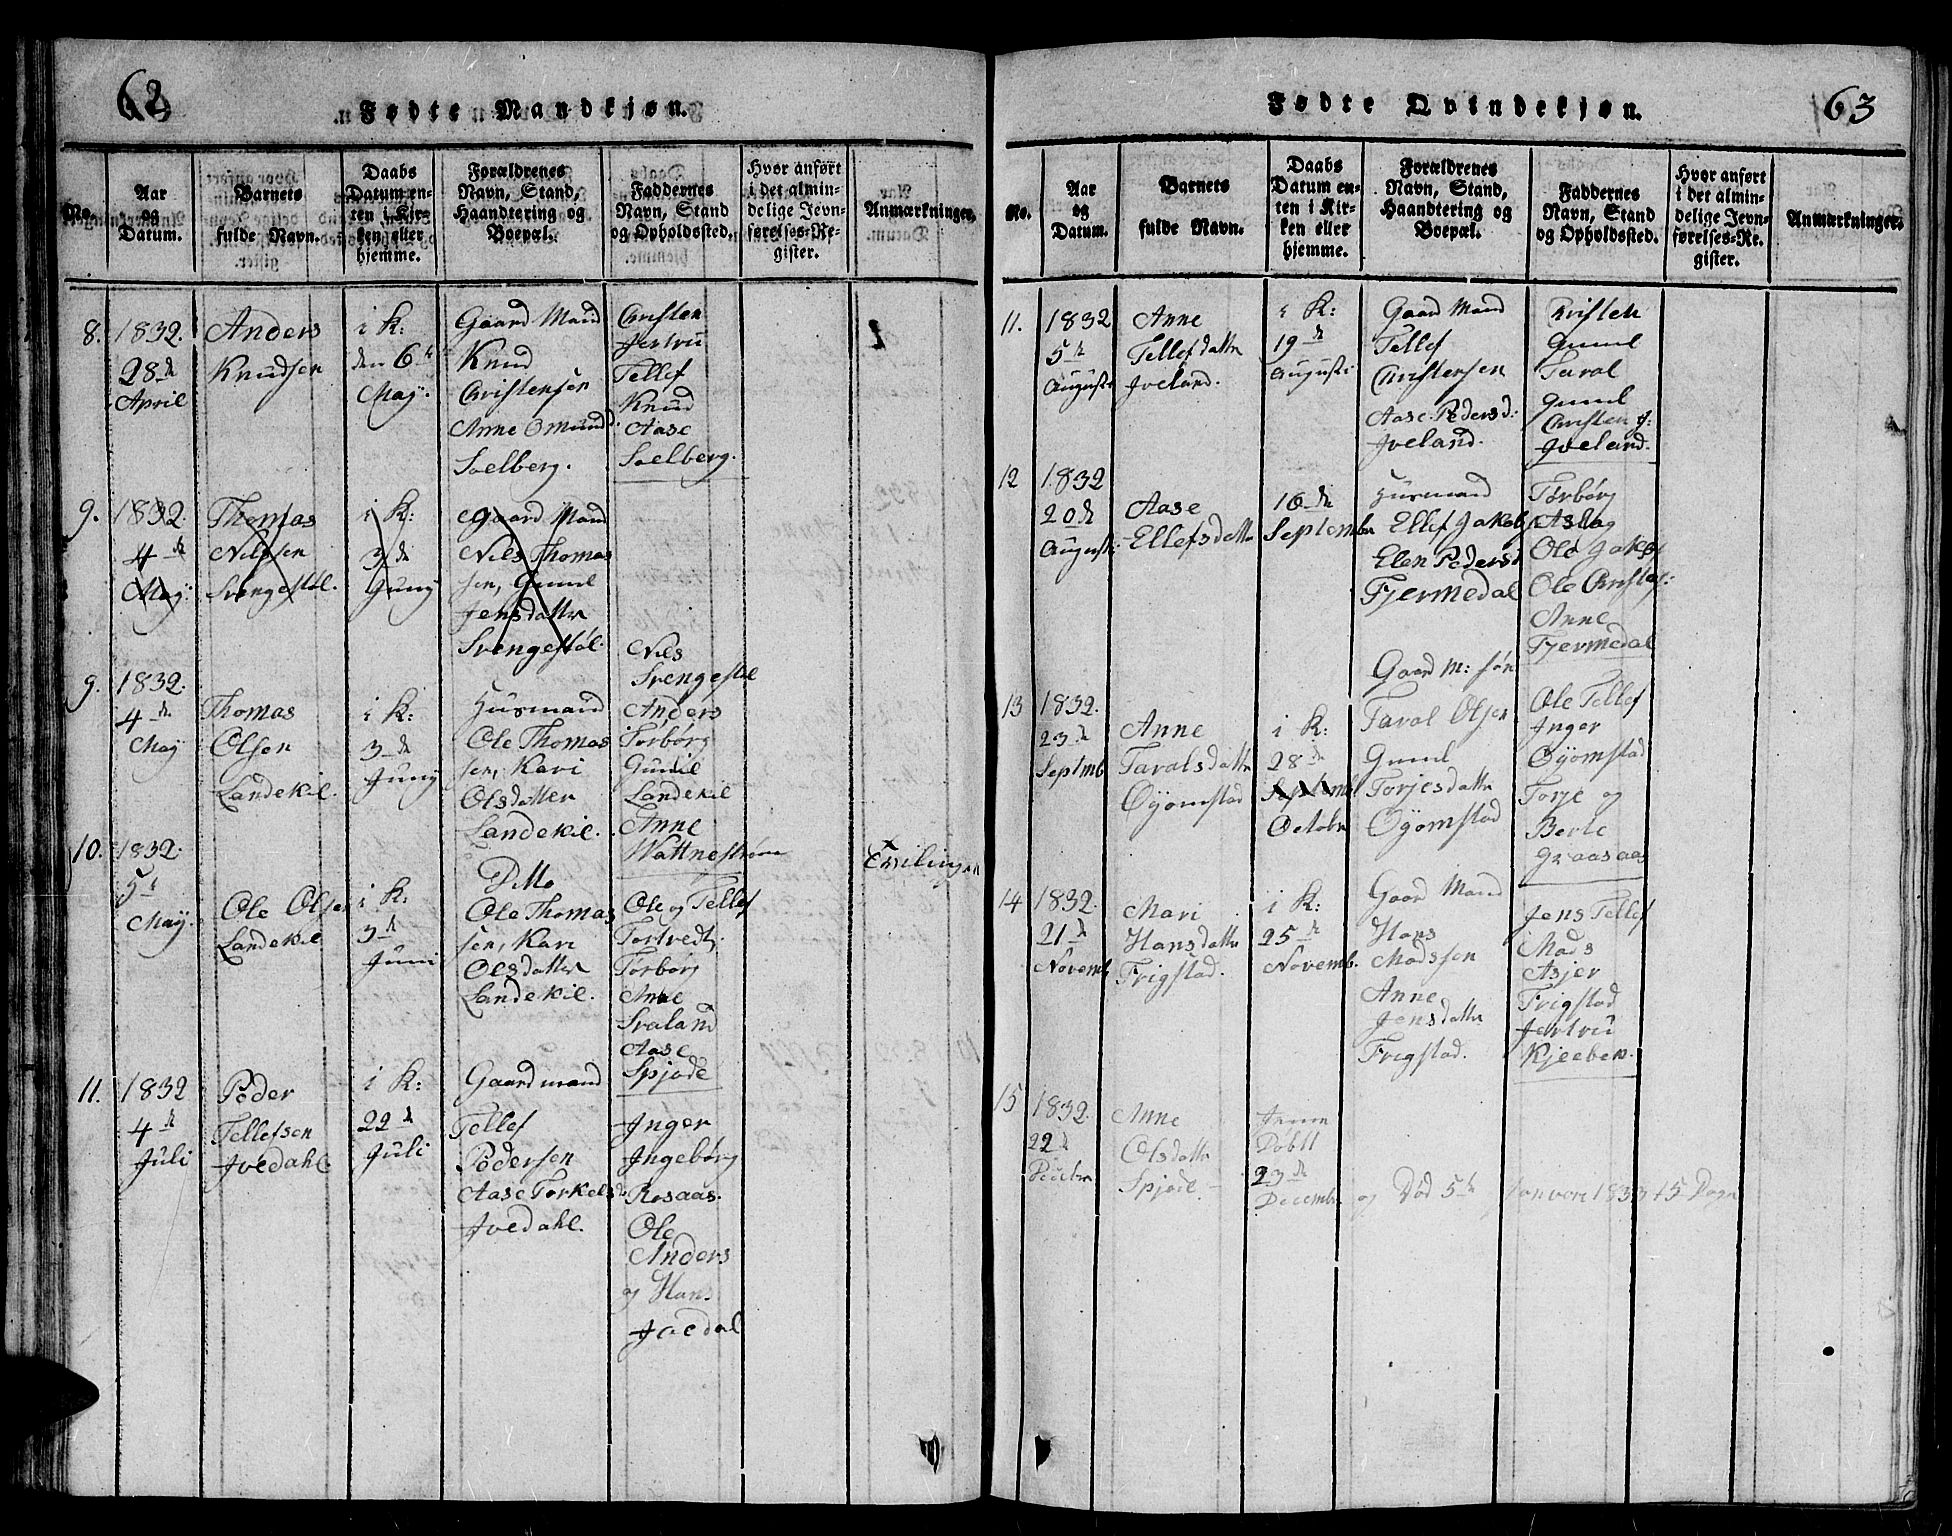 62
Fødte Mandkjøn.
No.
Aar og Datum.
Barnets fulde Navn.
Daabs Datum enten i Kirken eller hjemme.
Forældrenes Navn, Stand, Haandtering og Boepæl.
Faddernes Navn, Stand og Opholdssted.
Hvor anført i det almindelige Jevnførelses-Register.
Anmærkninger.
8.
1832.
28de
April
Anders
Knudsen
i K:
den 6te
Maÿ.
Gaard Mand
Knud
Christensen
Anne Omundd.
Soelberg.
Christen
Jertru
Tellef
Knud
Aase
Soelberg.
9.
1832.
4de
Maÿ.
Thomas
Nilssen
Svengestøl.
i K:
3de
Juny
Gaard Mand
Nils Thomas
sen, Gunil
Jensdatter
Svengestøl.
9.
1832.
4de
Maÿ
Thomas
Olsen
Landekil.
i K:
3de
Juny
Husmand
Ole Thomas
sen, Kari
Olsdatter
Landekil.
Nils
Svengestøl
Anders
Torbørg
Gunil
Landekil
Anne
Wattnestrøm
10.
1832.
5t
Maÿ.
Ole Olsen
Landekil
i K:
3de
Juni
Ditto
Ole Thomas
sen, Kari
Olsdatter
Landekil.
Ole og Tellef
Tortvedt.
Torbørg
Anne
Svaland
Aase
Spjode
Tvilinger
11.
1832
4de
Juli
Peder
Tellefsen
Jvedahl.
i K:
22de
Juli
Gaardmand
Tellef
Pedersen
Aase Torkelsd.
Jvedahl.
Inger
Ingebørg
Rosaas.
Ole
Anders
og Hans
Jvedal
63
Fødte Qvindekjøn.
No.
Aar og Datum.
Barnets fulde Navn.
Daabs Datum enten i Kirken eller hjemme.
Forældrenes Navn, Stand, Haandtering og Boepæl.
Faddernes Navn, Stand og Opholdssted.
Hvor anført i det almindelige Jevnførelses-Re. gister.
Anmærkninger.
11.
1832
5te
Augusti
Anne
Tellefdattr
Jveland.
i K:
19de
Augusti
Gaard Mand
Tellef
Christensen
Aase Pedersd:
Jveland.
Christen
Gunil
Taral
Gunil
Christen J:
Jveland.
12
1832
20de
Augusti
Aase
Ellefsdattr
16de
Septembr
Husmand
Ellef Jakobs
Elen Pedersd
Fjermedal
Torbørg
Aslag
Ole Jakobs
Ole Christof:
Anne
Fjermedal
13
1832.
23de
Septmb
Anne
Taralsdattr
Øyomstad
i K:
28de
Septembr
Octobr
Gaard M: søn
Taral Olsen
Gunil
Torjesdattr
Øyomstad
Ole Tellef
Inger
Øyomstad
Torje og
Berte
Graasaas
14
1832.
21de
Novemb
Mari
Hansdattr
Frigstad.
i K:
25de
Novemb.
Gaard Mand
Hans
Madssen
Anne
Jensdattr
Frigstad.
Jens Tellef
Mads
Asjer
Frigstad
Jertru
Kjeeben.
15
1832.
22de
Decembr
Anne
Olsdattr
Spjode.
Døbtt
23de
Decembr og Død 5te Januari 1833 15 Dage